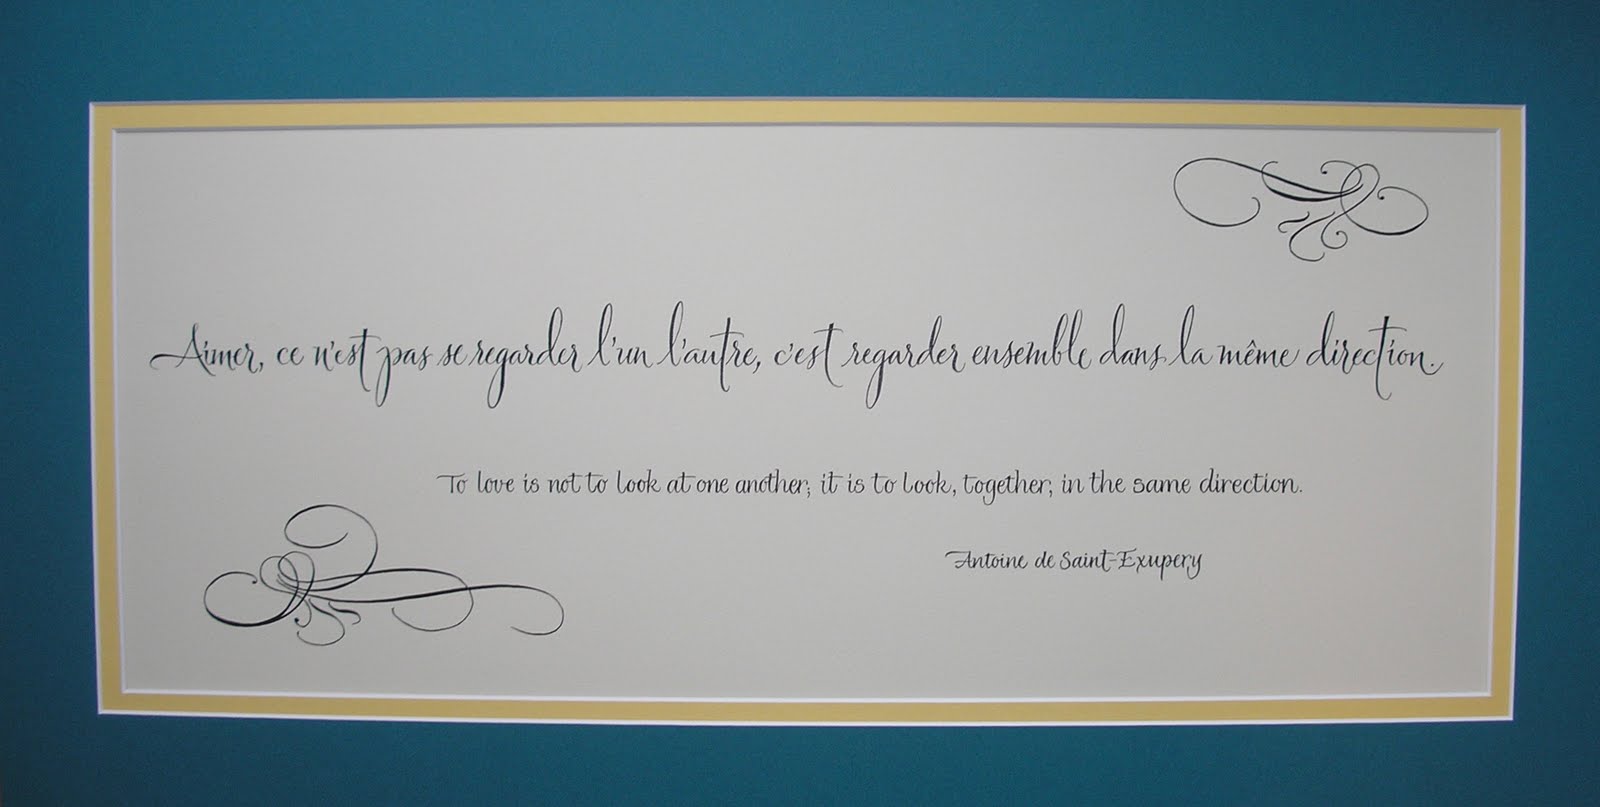 Aimer, ce n'est pas se regarder l'un l'autre, c'est regarder ensemble dans la même direction.
To love is not to look at one another; it is to look, together, in the same direction.
Antoine de Saint-Exupery